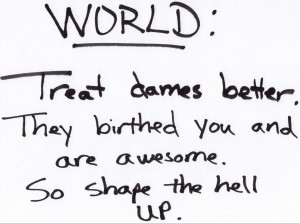 WORLD:
Treat dames better.
They birthed you and
are awesome.
So shape the hell
UP.